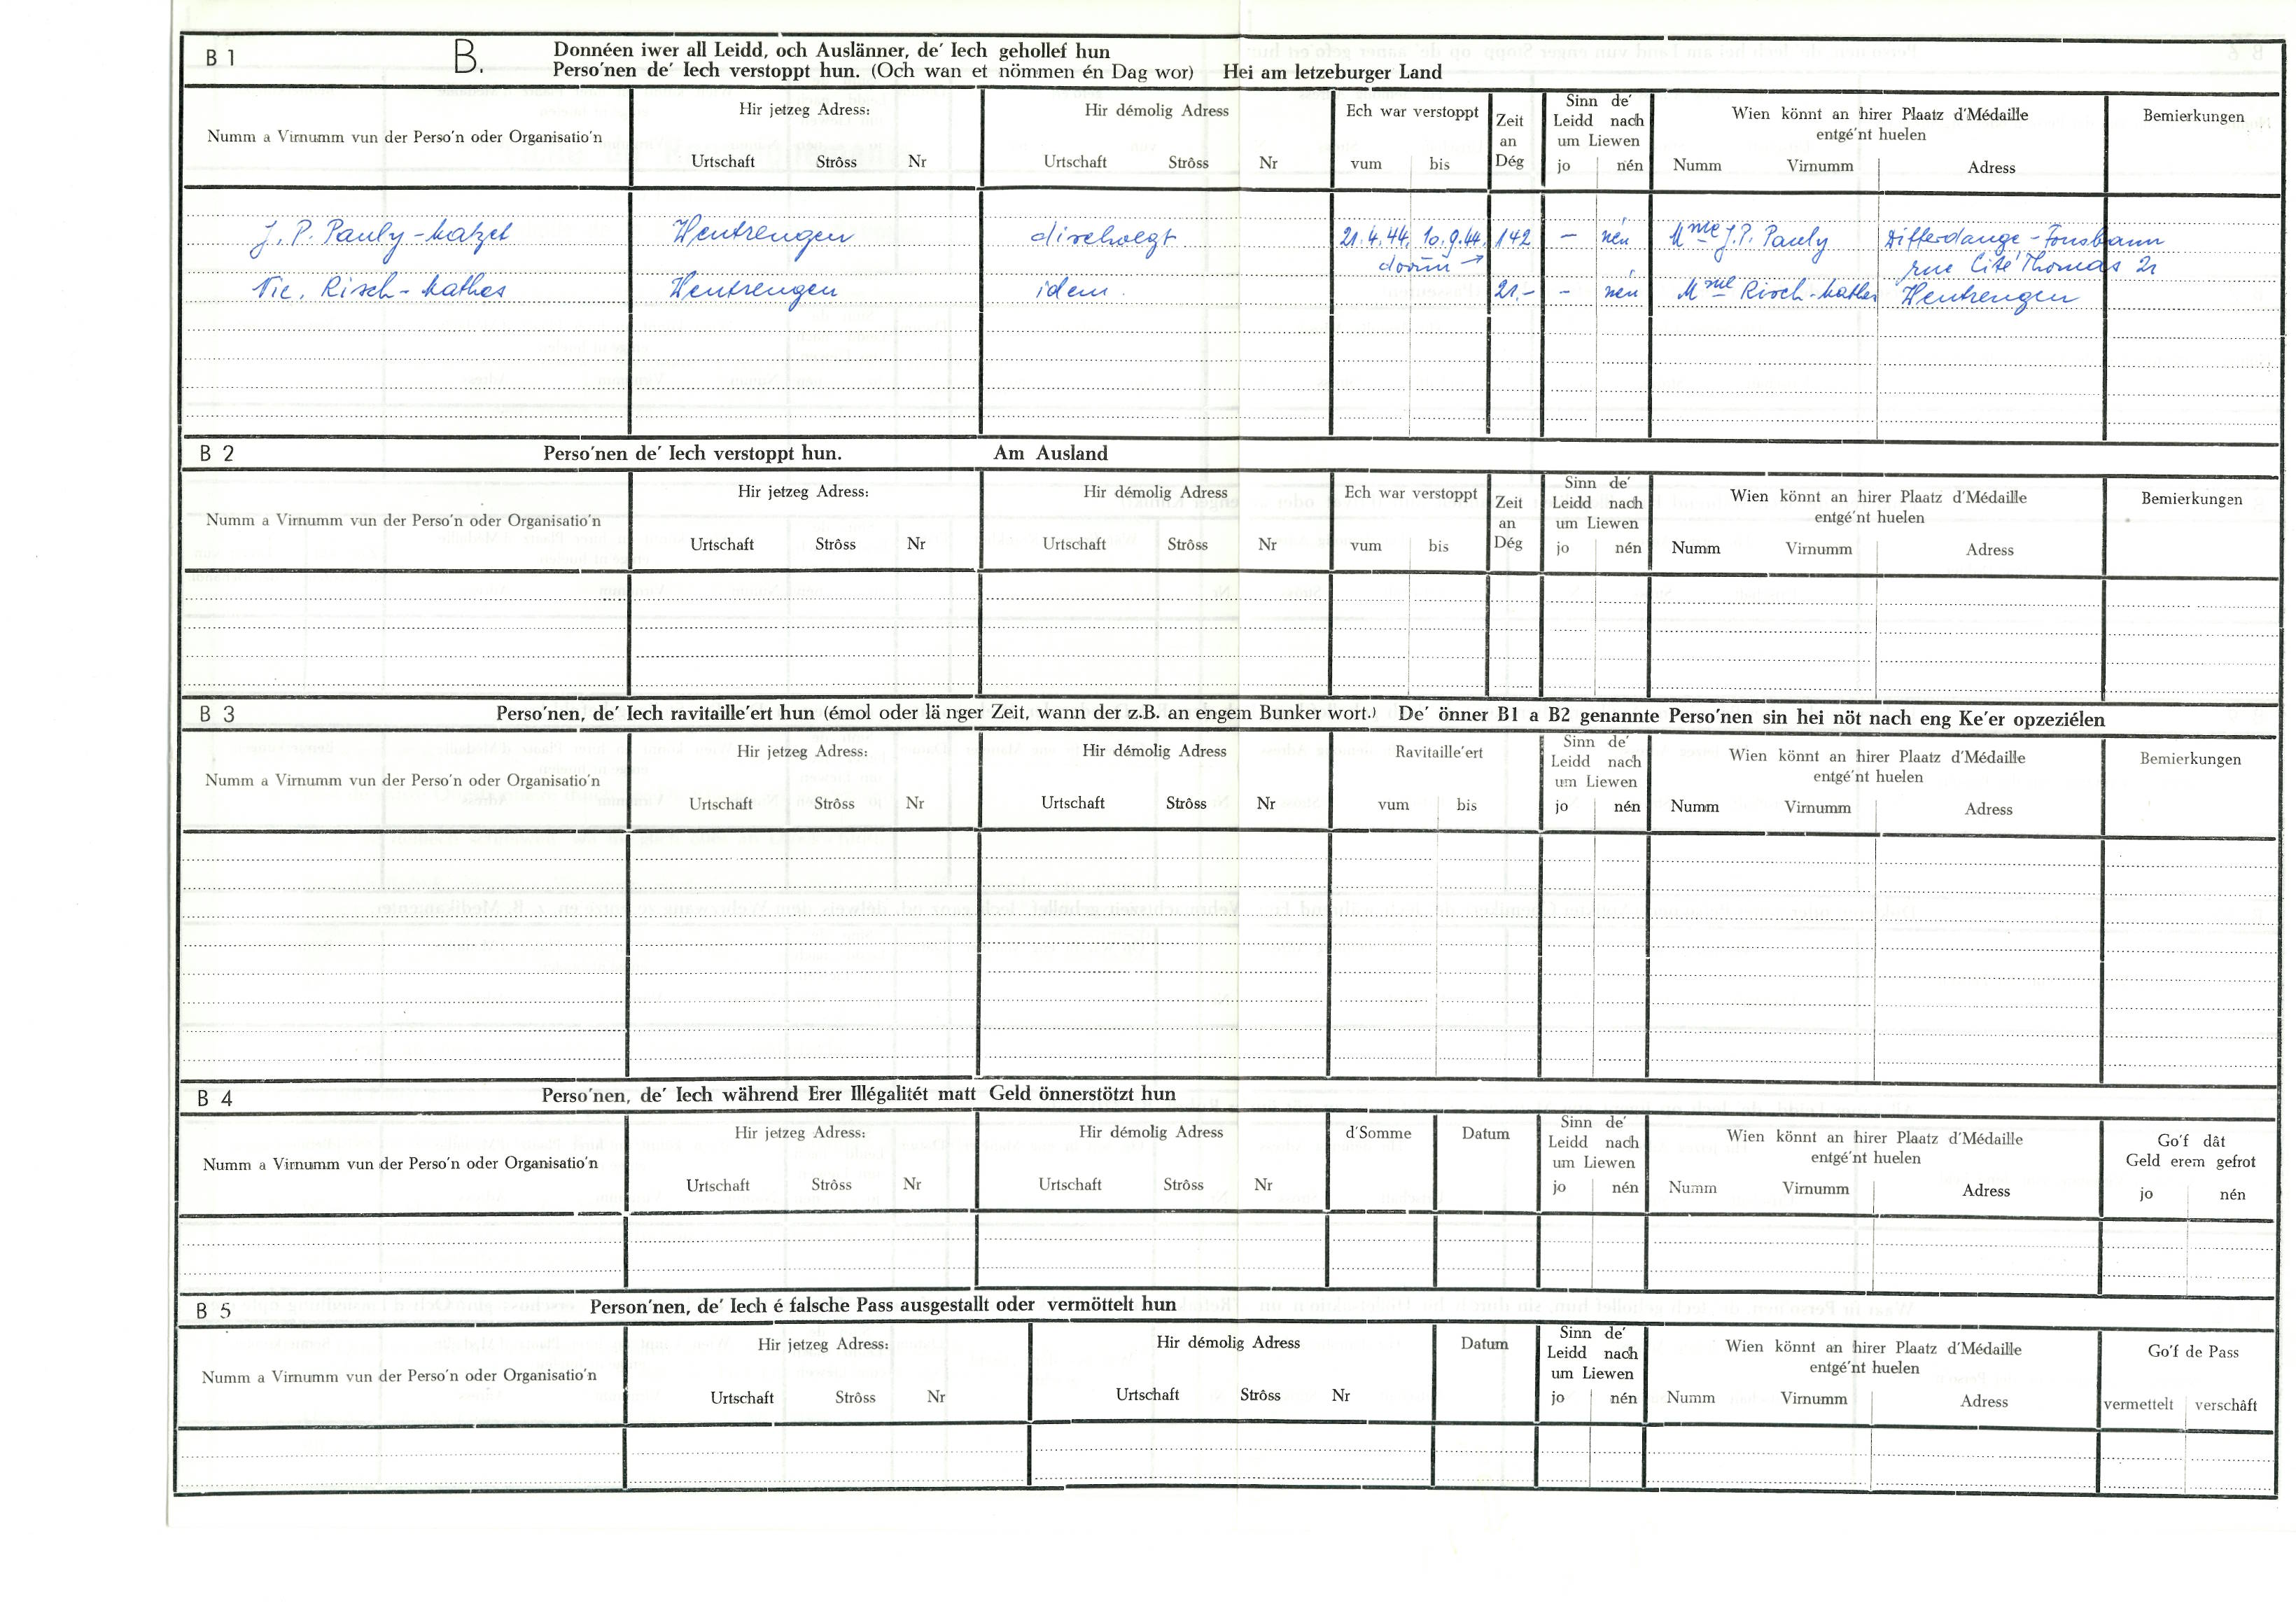 B 1 B. Donnéen iwer all Leidd, och Auslänner, de' Iech gehollef hun
Perso'nen de' Iech verstoppt hun. (Och wan et nömmen én Dag wor) Hei am letzeburger Land
Numm a Virnumm vun der Perso'n oder Organisatio'n
Hir jetzeg Adress:
Urtschaft Strôss Nr
Hir démolig Adress
Urtschaft Strôss Nr
Ech war verstoppt
vum bis
Zeit
an
Dég
Sinn de'
Leidd nach
um Liewen
jo nén
Wien könnt an hirer Plaatz d'Médaille
entgé'nt huelen
Numm Virnumm Adress
Bemierkungen
J. P. Pauly - Matzet Hentrengen 21.4.44. 10.9.44. 142 — nén Mme J.P. Pauly Differdange - Fousbann
dovun → rue Cité Thomas 21
Nic. Risch - Mathes Hentrengen idem. 21.- - nén Mme Risch - Mathes Hentrengen
B 2 Perso'nen de' Iech verstoppt hun. Am Ausland
Numm a Virnumm vun der Perso'n oder Organisatio'n
Hir jetzeg Adress:
Urtschaft Strôss Nr
Hir démolig Adress
Urtschaft Strôss Nr
Ech war verstoppt
vum bis
Zeit
an
Dég
Sinn de'
Leidd nach
um Liewen
jo nén
Wien könnt an hirer Plaatz d'Médaille
entgé'nt huelen
Numm Virnumm Adress
Bemierkungen
B 3 Perso'nen, de' Iech ravitaille'ert hun (émol oder lä nger Zeit, wann der z.B. an engem Bunker wort.) De' önner B1 a B2 genannte Perso'nen sin hei nöt nach eng Ke'er opzeziélen
Numm a Virnumm vun der Perso'n oder Organisatio'n
Hir jetzeg Adress:
Urtschaft Strôss Nr
Hir démolig Adress
Urtschaft Strôss Nr
Ravitaille'ert
vum bis
Sinn de'
Leidd nach
um Liewen
jo nén
Wien könnt an hirer Plaatz d'Médaille
entgé'nt huelen
Numm Virnumm Adress
Bemierkungen
B 4 Perso'nen, de' Iech während Erer Illégalitét matt Geld önnerstötzt hun
Numm a Virnumm vun der Perso'n oder Organisatio'n
Hir jetzeg Adress:
Urtschaft Strôss Nr
Hir démolig Adress
Urtschaft Strôss Nr
d'Somme Datum
Sinn de'
Leidd nach
um Liewen
jo nén
Wien könnt an hirer Plaatz d'Médaille
entgé'nt huelen
Numm Virnumm Adress
Go'f dât
Geld erem gefrot
jo nén
B 5 Person'nen, de' Iech é falsche Pass ausgestallt oder vermöttelt hun
Numm a Virnumm vun der Perso'n oder Organisatio'n
Hir jetzeg Adress:
Urtschaft Strôss Nr
Hir démolig Adress
Urtschaft Strôss Nr
Datum
Sinn de'
Leidd nach
um Liewen
jo nén
Wien könnt an hirer Plaatz d'Médaille
entgé'nt huelen
Numm Virnumm Adress
Go'f de Pass
vermettelt verschâft